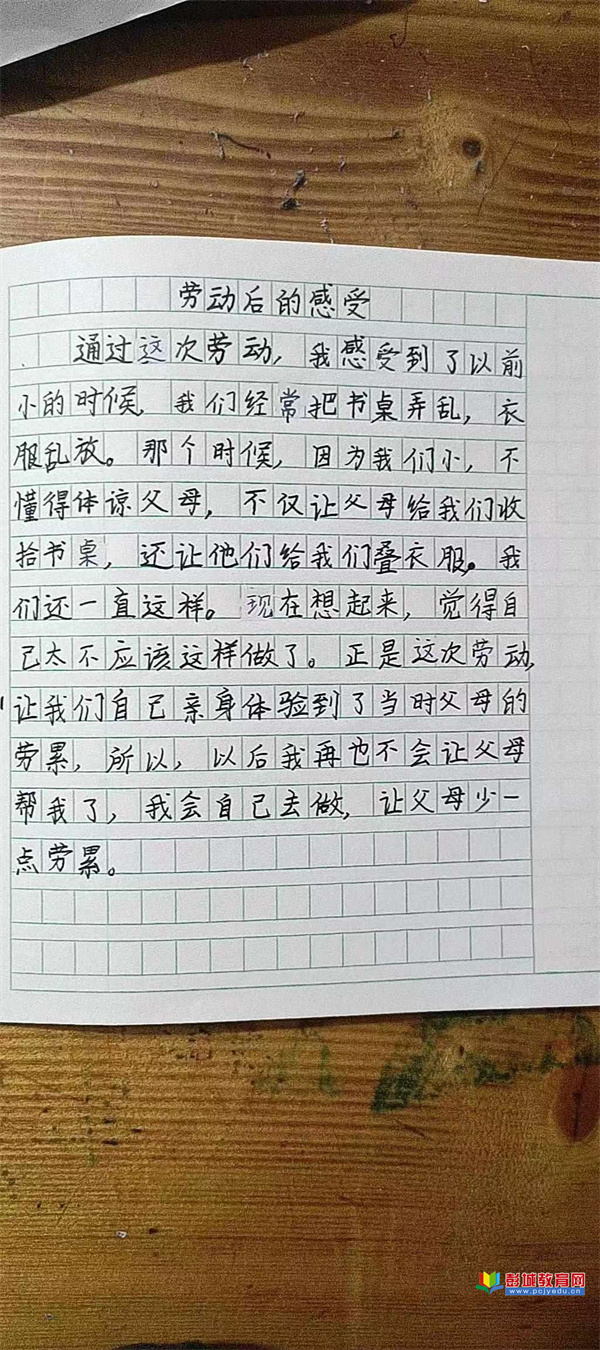 劳动后的感受
通过这次劳动，我感受到了以前
小的时候，我们经常把书桌弄乱，衣
服乱放。那个时候，因为我们小，不
懂得体谅父母，不仅让父母给我们收
拾书桌，还让他们给我们叠衣服。我
们还一直这样。现在想起来，觉得自
己太不应该这样做了。正是这次劳动，
让我们自己亲身体验到了当时父母的
劳累，所以，以后我再也不会让父母
帮我了，我会自己去做，让父母少一
点劳累。
彭城教育网
www.pcjyedu.cn